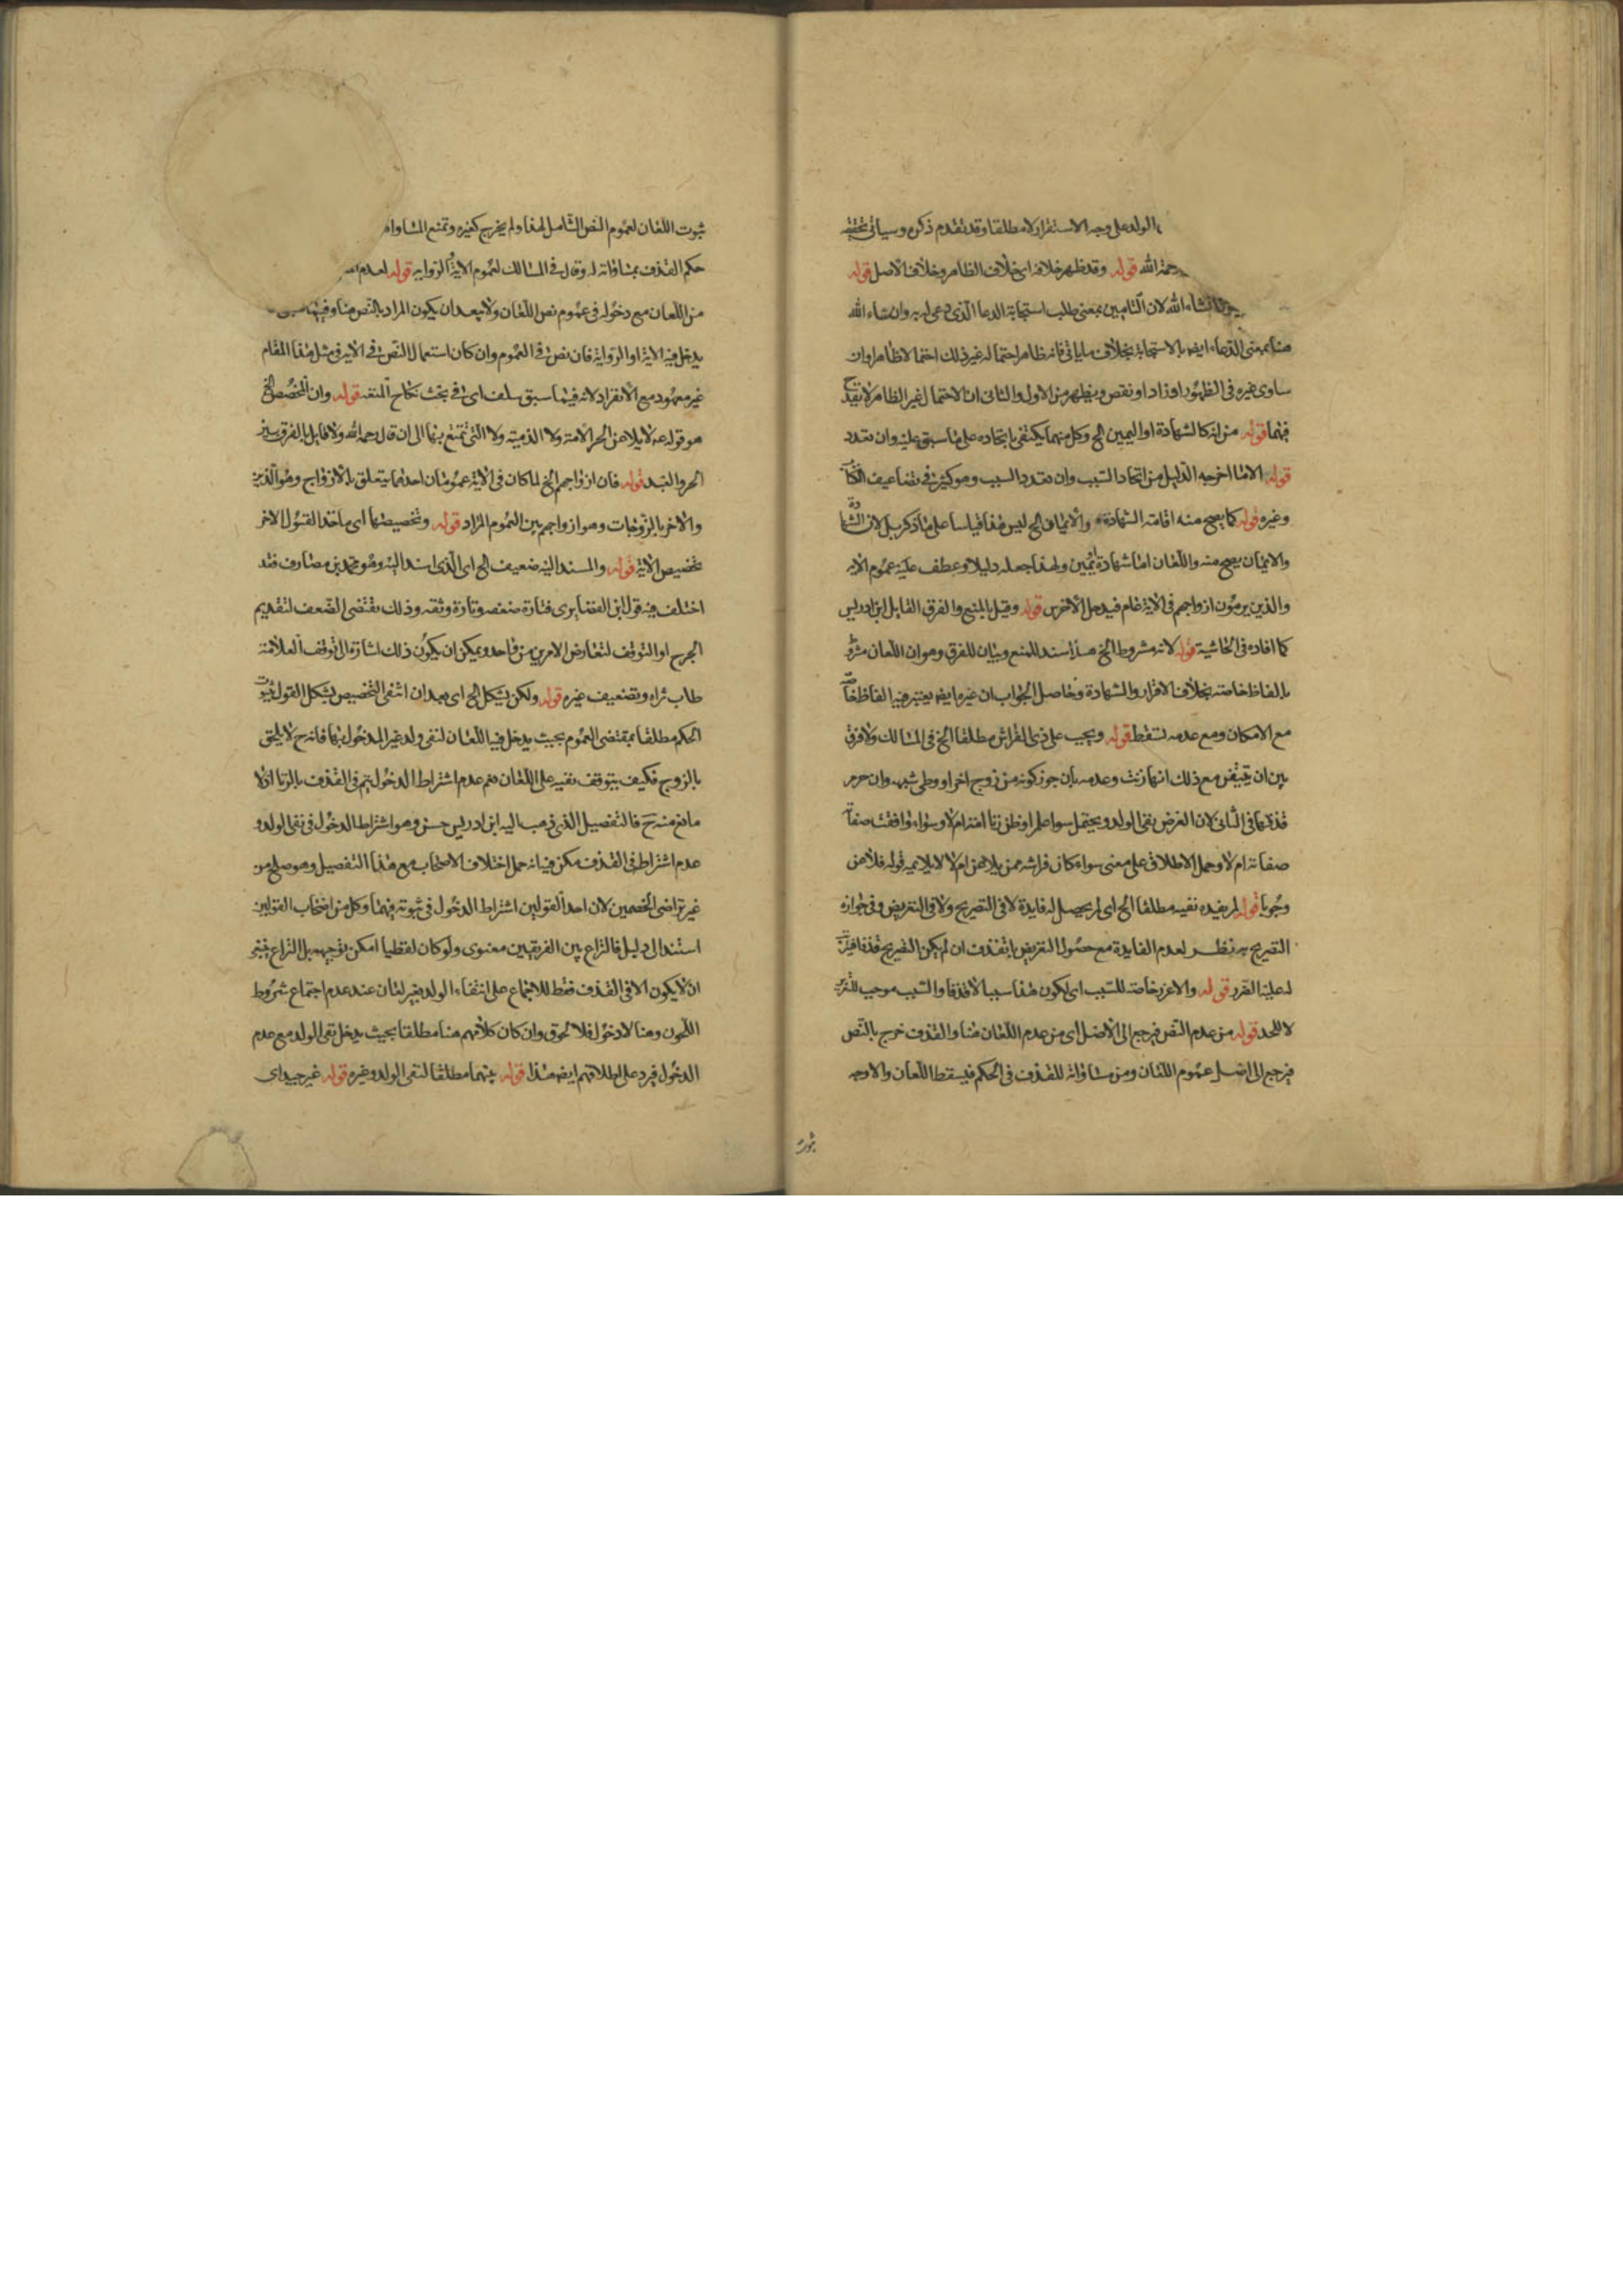 الولد على وجه الاستقرار لا مطلقا وقد تقدم ذكره وسياتى تحقيقه
رحمة الله قوله وقد ظهر خلافه اى خلاف الظاهر وخلاف الاصل قوله
انشاء الله لان التامين بمعنى طلب استجابة الدعا الذى دعى له به وان شاء الله
هنا بمعنى الدعاء ايضا بالاستجابة بخلاف ما ياتى فانه ظاهر احتماله غير ذلك احتمالا ظاهرا وان
ساوى غيره فى الظهور او زاد او نقص ويظهر من الاول والثانى ان الاحتمال غير الظاهر لا يقدح
فيهما قوله من انه كالشهادة او اليمين الخ وكل منهما يكتفى باتحاده على ما سبق عليه وان تعدد
قوله الا ما اخرجه الدليل من اتحاد السبب وان تعدد السبب وهو كثير فى تضاعيف
وغيره قوله كما يصح منه اقامة الشهادة والايمان الخ ليس هذا قياسا على ما ذكر بل لان الشهادة
والايمان يصح منه واللعان اما شهادة او يمين ولهذا جعله دليلا وعطف عليه عموم الاية
والذين يرمون ازواجهم فى الاية عام فيدخل الاخرس قوله وقيل بالمنع والفرق القايل ابن ادريس
كما افاده فى الحاشية قوله لانه مشروط الخ هذا سند للمنع وبيان للفرق وهو ان اللعان مشروط
بالفاظ خاصة بخلاف الاقرار والشهادة وحاصل الجواب ان غيره ايضا يعتبر فيه الفاظ خاصة
مع الامكان ومع عدمه تسقط قوله ويجب على ذى الفراش مطلقا الخ فى المسالك ولا فرق
بين ان يتيقن مع ذلك انها زنت وعدمه بان جوز كونه من زوج اخر او وطى شبهة وان حرم
قذفها فى الثانى لان الغرض نفى الولد ويحتمل سوا علم او ظن زنا امه ام لا وسواء وافقت صفاته
صفاته ام لا وحمل الاطلاق على معنى سواء كان فراشه ممن يلاعن ام لا لا يلايمه قوله فلاعن
وجوبا قوله لم يفده نفيه مطلقا الخ اى لم يحصل له فايدة لا فى التصريح ولا فى التعريض وفى جوازه
التصريح به نظر لعدم الفايدة مع حصول التعريض بالقذف ان لم يكن التصريح قذفا
له علينا الضرر قوله والاعزر خاصة للسبب اى لكون هذا سببا لا قذفا والسبب موجب للتعزير
لا للحد قوله من عدم النص فيرجع الى الاصل اى من عدم اللعان هنا والقذف خرج بالنص
فيرجع الى اصل عموم اللعان ومن مساواته للقذف فى الحكم فيسقط اللعان والاوجه
ثبوت
ثبوت اللعان لعموم النص الشامل لهذا ولم يخرج كغيره وتمنع المساواة
حكم القذف بمساواته له وقال فى المسالك لعموم الاية او الرواية قوله لعدم
من اللعان مع دخوله فى عموم نص اللعان ولا يبعد ان يكون المراد بالنص هنا وفيما
يدخل فيه الاية او الرواية فان نص فى العموم وان كان استعمال النص فى الاية فى مثل هذا المقام
غير معهود مع الانفراد لانه فيما سبق سلف اى فى بحث نكاح المتعة قوله وان المخصص الخ
هو قوله ع لا يلاعن الحر الامة ولا الذمية ولا التى تمتع بها الى ان قال رحمه الله ولا قايل بالفرق بين
الحر والعبد قوله فان ازواجهم الخ لما كان فى الاية عمومان احدهما يتعلق بالازواج وهو الذين
والاخر بالزوجات وهو ازواجهم بين العموم المراد قوله وتخصيصها اى ما خذ القبول الاخر
تخصيص الاية قوله والمسند اليه ضعيف الخ اى الذى اسند اليه وهو محمد بن مصادف فقد
اختلف فيه قول ابن الغضايرى فتارة ضعفه وتارة وثقه وذلك يقتضى الضعف لتقديم
الجرح او التوقف لتعارض الامرين من واحد ويمكن ان يكون ذلك اشارة الى توقف العلامة
طاب ثراه وتضعيف غيره قوله ولكن يشكل الخ اى بعد ان انتفى التخصيص يشكل القول بثبوت
الحكم مطلقا بمقتضى العموم بحيث يدخل فيه اللعان لنفى ولد غير المدخول بها فانه ح لا يلحق
بالزوج فكيف يتوقف نفيه على اللعان نعم عدم اشتراط الدخول يتم فى القذف بالزنا اذ لا
مانع منه ح فالتفصيل الذى ذهب اليه ابن ادريس حسن وهو اشتراط الدخول فى نفى الولد و
عدم اشتراطه فى القذف لكن فيه انه حمل اختلاف الاصحاب مع هذا التفصيل وهو صلح من
غير تراضى الخصمين لان احد القولين اشتراط الدخول فى ثبوته فيهما وكل من اصحاب القولين
استند الى دليل فالنزاع بين الفريقين معنوى ولو كان لفظيا امكن توجيهه بل النزاع ينبغى
ان لا يكون الا فى القذف فقط للاجماع على انتفاء الولد بغير لعان عند عدم اجتماع شروط
اللحوق وهنا لا دخول فلا لحوق وان كان كلامهم هنا مطلقا بحيث يدخل نفى الولد مع عدم
الدخول فيرد على اطلاقهم ايضا هذا قوله فيهما مطلقا لنفى الولد وغيره قوله غير جيد اى